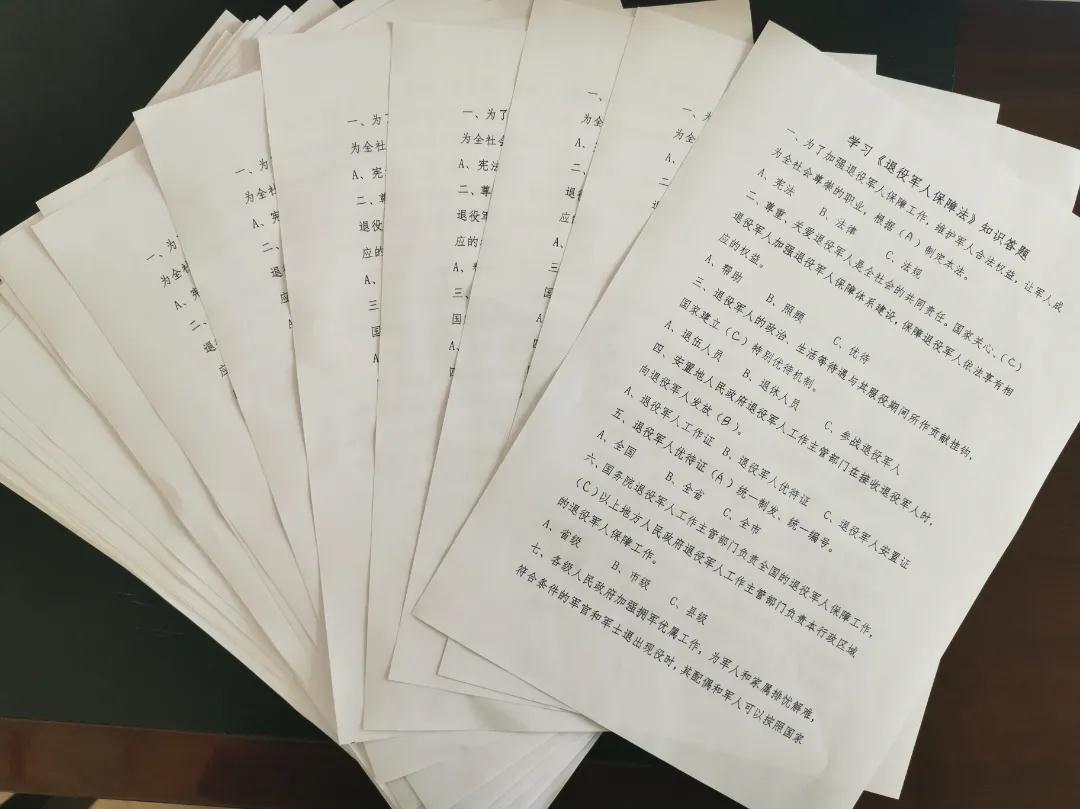 学习《退役军人保障法》知识答题
一、为了加强退役军人保障工作，维护军人合法权益，让军人成
为全社会尊崇的职业，根据（A）制定本法。
A、宪法 B、法律 C、法规
二、尊重、关爱退役军人是全社会的共同责任。国家关心、（C）
退役军人加强退役军人保障体系建设，保障退役军人依法享有相
应的权益。
A、帮助 B、照顾 C、优待
三、退役军人的政治、生活等待遇与其服役期间所作贡献挂钩，
国家建立（C）特别优待机制。
A、退伍人员 B、退休人员 C、参战退役军人
四、安置地人民政府退役军人工作主管部门在接收退役军人时，
向退役军人发放（B）。
A、退役军人工作证 B、退役军人优待证 C、退役军人安置证
五、退役军人优待证（A）统一制发、统一编号。
A、全国 B、全省 C、全市
六、国务院退役军人工作主管部门负责全国的退役军人保障工作，
（C）以上地方人民政府退役军人工作主管部门负责本行政区域
的退役军人保障工作。
A、省级 B、市级 C、县级
七、各级人民政府加强拥军优属工作，为军人和家属排忧解难，
符合条件的军官和军士退出现役时，其配偶和军人可以按照国家
一、
为
A、
二、
一、
为全
A、
二、
退役
应的
A、
三
国
A、
四
一、为了
为全社
A、宪法
二、尊
退役军
应的
A、
三、
国
A、
四
一、为
为全社
A、宪
二、
退役
应的
A、
三
国
A
一、为
为全社
A、
二、
退
应
A、
一、为
为全社
A、
二、
退
应